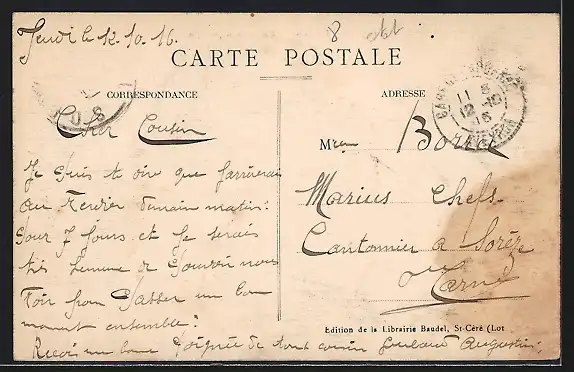 Jeudi le 12.10.16.
CARTE POSTALE
CORRESPONDANCE
ADRESSE
Cher Cousin
Je puis te dire que j'arriverai
demain matin.
Pour 7 jours et je serais
très de pouvoir nous
voir pour passer un bon
moment ensemble.
Reçois une bonne poignée de ton cousin Augustin
Marius chef
Cantonnier a Sorèze
Tarn
11 5
12-10
16
Edition de la Librairie Baudel, St-Céré (Lot